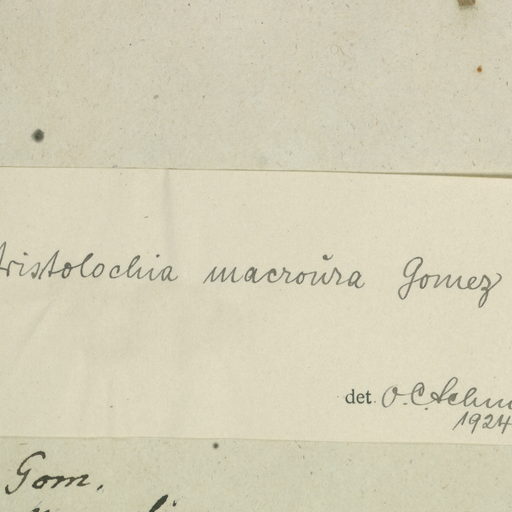 Aristolochia macroŭra Gomez
det. O. C. Schm
1924
Gom.